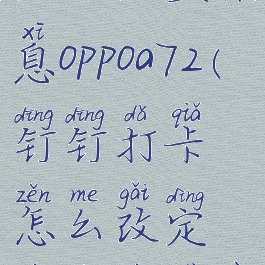 xī
息oppoa72(
dīng dīng dǎ qiǎ
钉钉打卡
zěn me gǎi dìng
怎么改定